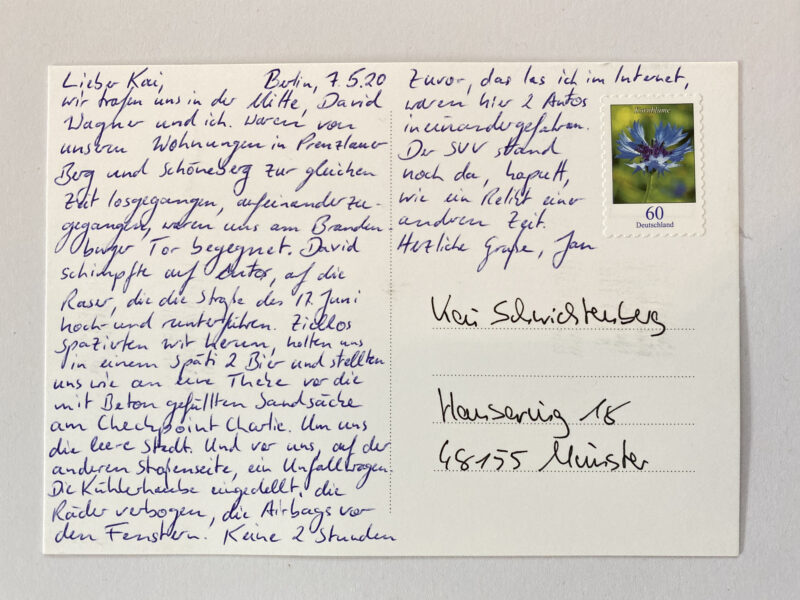 Lieber Kai, Berlin, 7.5.20
wir trafen uns in der Mitte, David
Wagner und ich. Waren von
unsern Wohnungen in Prenzlauer
Berg und Schöneberg zur gleichen
Zeit losgegangen, aufeinander zu-
gegangen, waren uns am Branden-
burger Tor begegnet. David
schimpfte auf Autos, auf die
Raser, die die Straße des 17. Juni
hoch- und runterführen. Ziellos
spazirten wir herum, holten uns
in einem Späti 2 Bier und stellten
uns wie an eine Theke vor die
mit Beton gefüllten Sandsäcke
am Checkpoint Charlie. Um uns
die leere Stadt. Und vor uns, auf der
anderen Staßenseite, ein Unfallwagen.
Die Kühlerhaube eingedellt, die
Räder verbogen, die Airbags vor
den Fenstern. Keine 2 Stunden
zuvor, das las ich im Internet,
waren hier 2 Autos
ineinandergefahren.
Der SUV stand
noch da, kaputt,
wie ein Relikt einer
andren Zeit.
Herzliche Grüße, Jan
Kornblume
60
Deutschland
Kai Schwichtenberg
Hansaring 18
48155 Münster